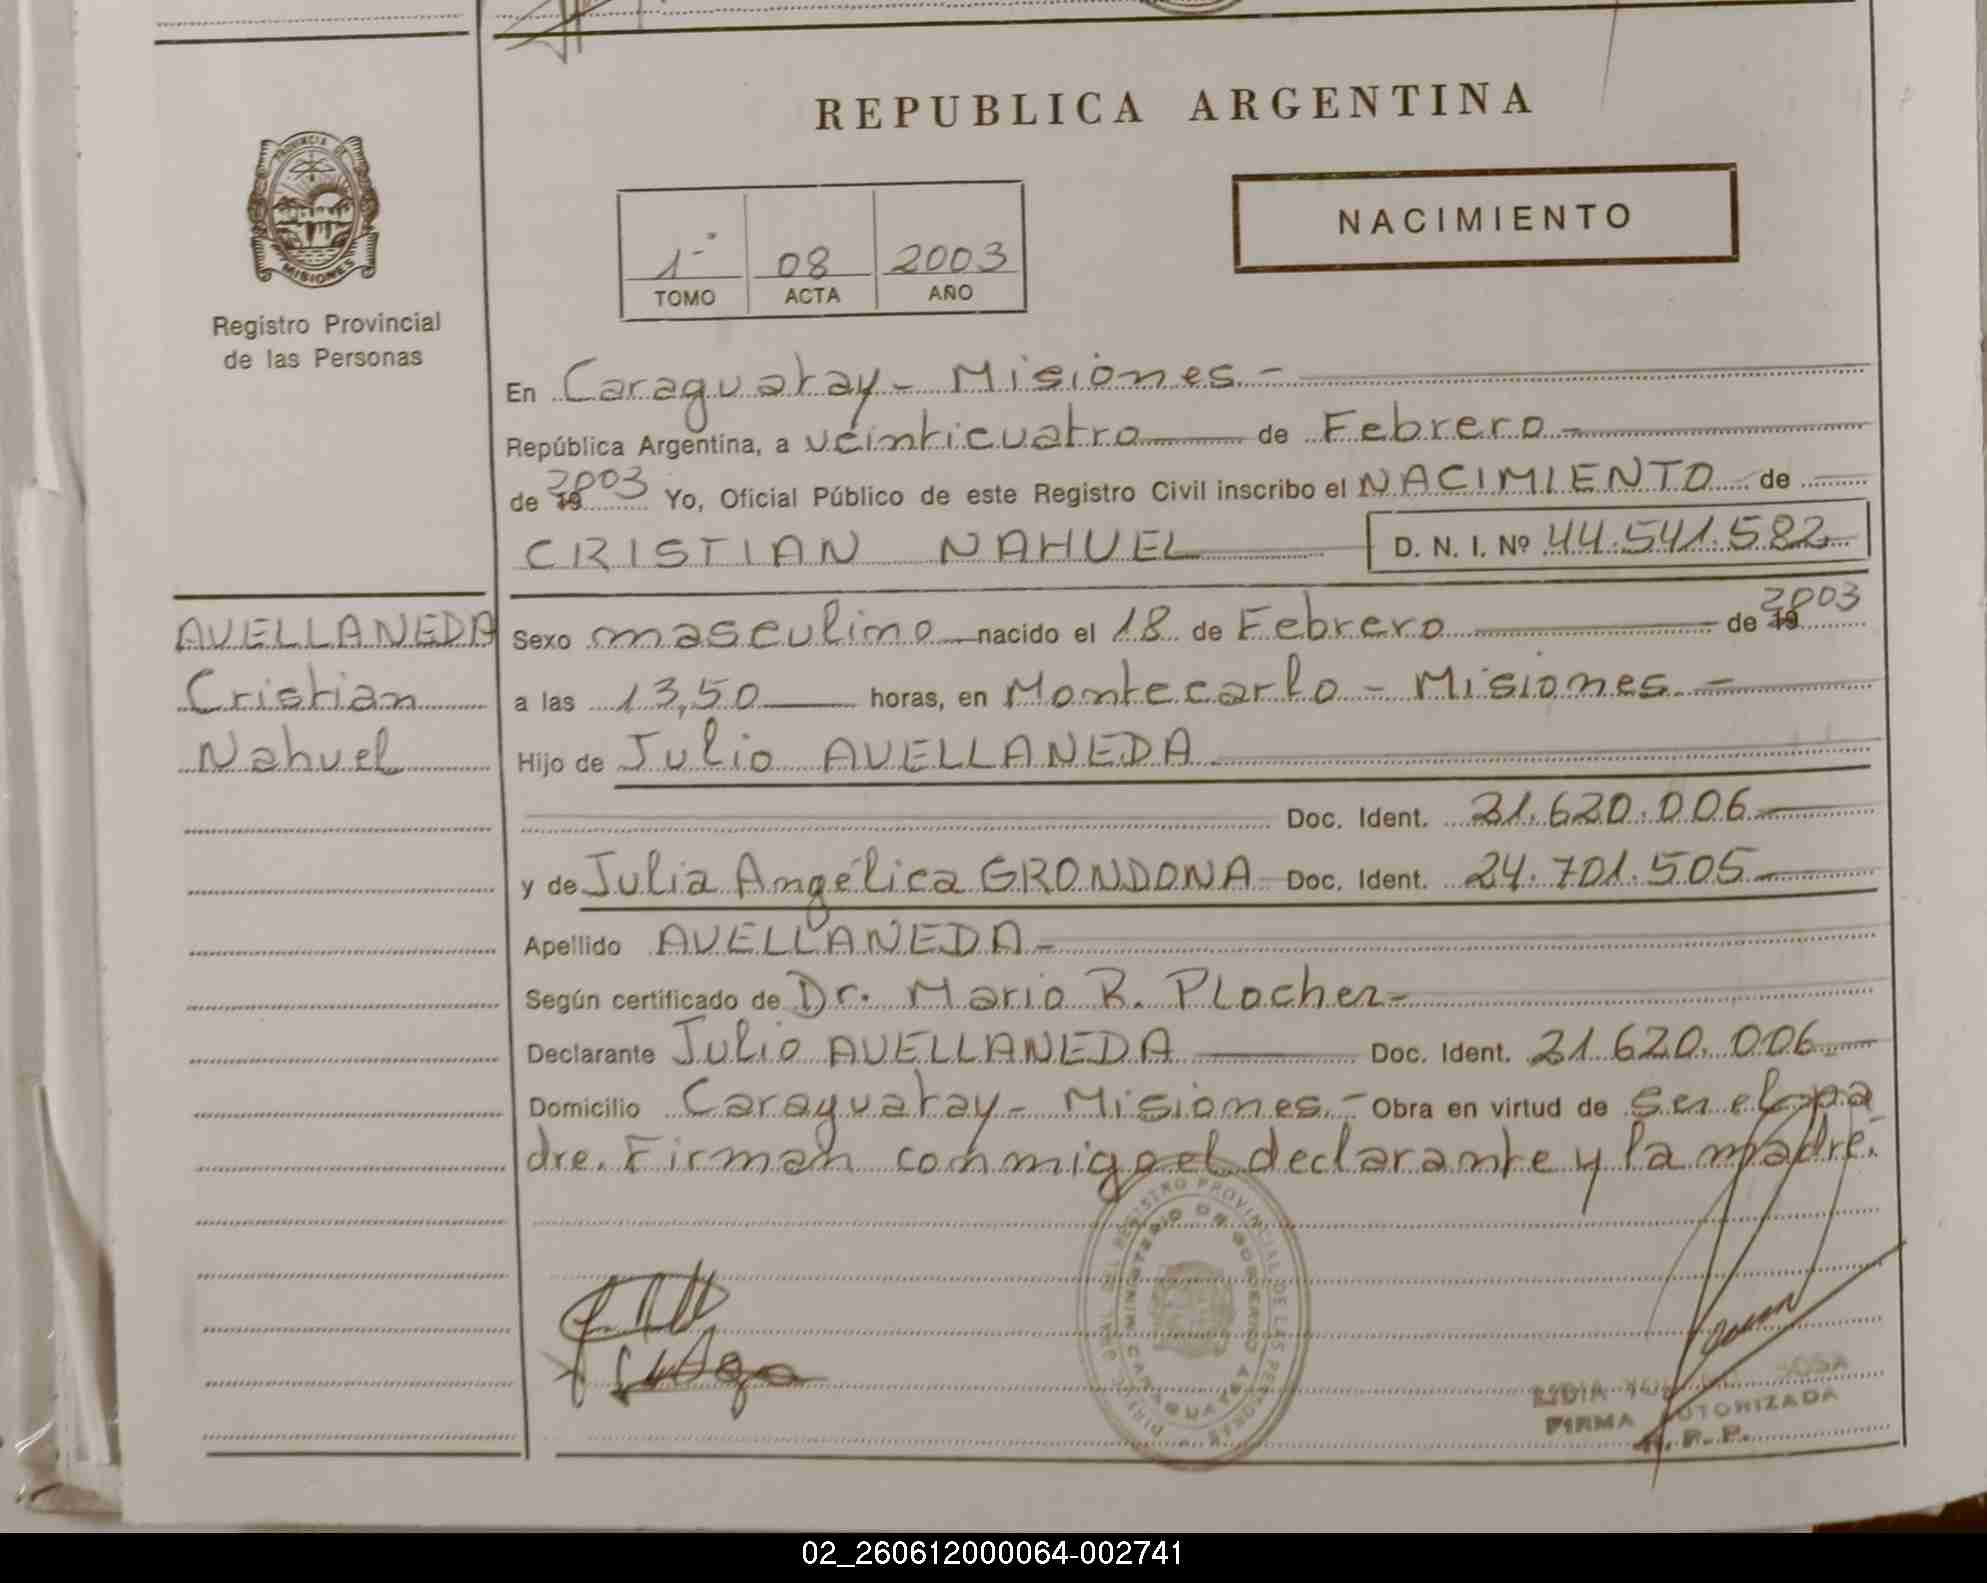 REPUBLICA ARGENTINA
PROVINCIA DE
MISIONES
Registro Provincial
de las Personas
NACIMIENTO
1º 08 2003
TOMO ACTA AÑO
En Caraguatay - Misiones -
República Argentina, a veinticuatro de Febrero -
de 19 2003 Yo, Oficial Público de este Registro Civil inscribo el NACIMIENTO de
CRISTIAN NAHUEL D. N. I. Nº 44.541.582
AVELLANEDA
Cristian
Nahuel
Sexo masculino nacido el 18 de Febrero de 19 2003
a las 13,50 horas, en Montecarlo - Misiones -
Hijo de Julio AVELLANEDA
Doc. Ident. 21.620.006
y de Julia Angélica GRONDONA Doc. Ident. 24.701.505
Apellido AVELLANEDA -
Según certificado de Dr. Mario R. Plocher -
Declarante Julio AVELLANEDA Doc. Ident. 21.620.006
Domicilio Caraguatay - Misiones - Obra en virtud de ser el pa
dre. Firman conmigo el declarante y la madre.
REGISTRO PROVINCIAL DE LAS PERSONAS
MINISTERIO DE GOBIERNO
CARAGUATAY
LIDIA SOSA
FIRMA AUTORIZADA
R. P. P.
02_260612000064-002741